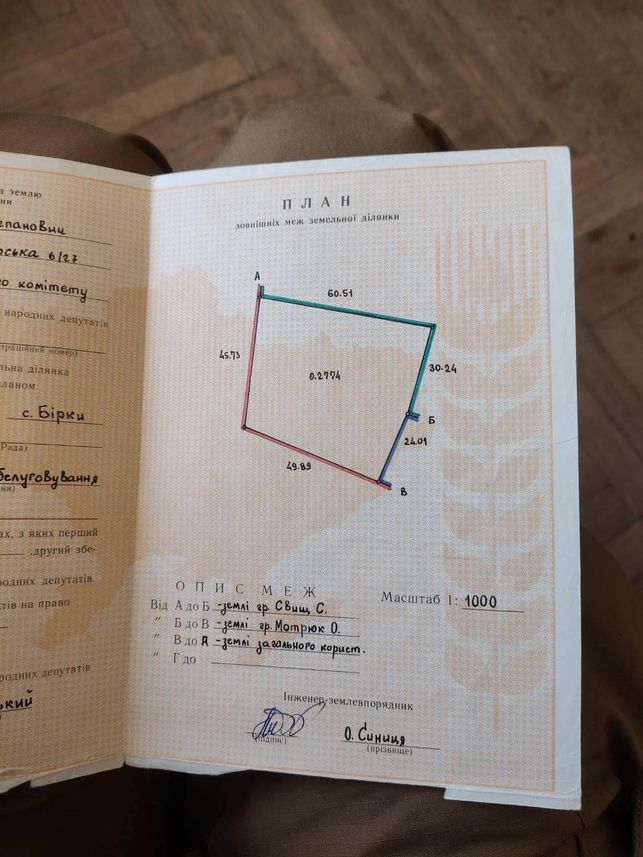 д землю
ни
епанович
рська 6/27
го комітету
народних депутатів
траційний номер)
льна ділянка
ланом.
с. Бірки
Рада)
бслуговування
ня)
ах, з яких перший
,другий збе-
родних депутатів.
тів на право
родних депутатів
ький
ПЛАН
зовнішніх меж земельної ділянки
А
60.51
45.73
30.24
0.2774
Б
24.01
49.89
В
ОПИС МЕЖ
Масштаб 1: 1000
Від А до Б -землі гр. Свищ С.
" Б до В -землі гр. Мотрюк О.
" В до А -землі загального корист.
" Г до
Інженер-землевпорядник
О. Синиця
(підпис)
(прізвище)